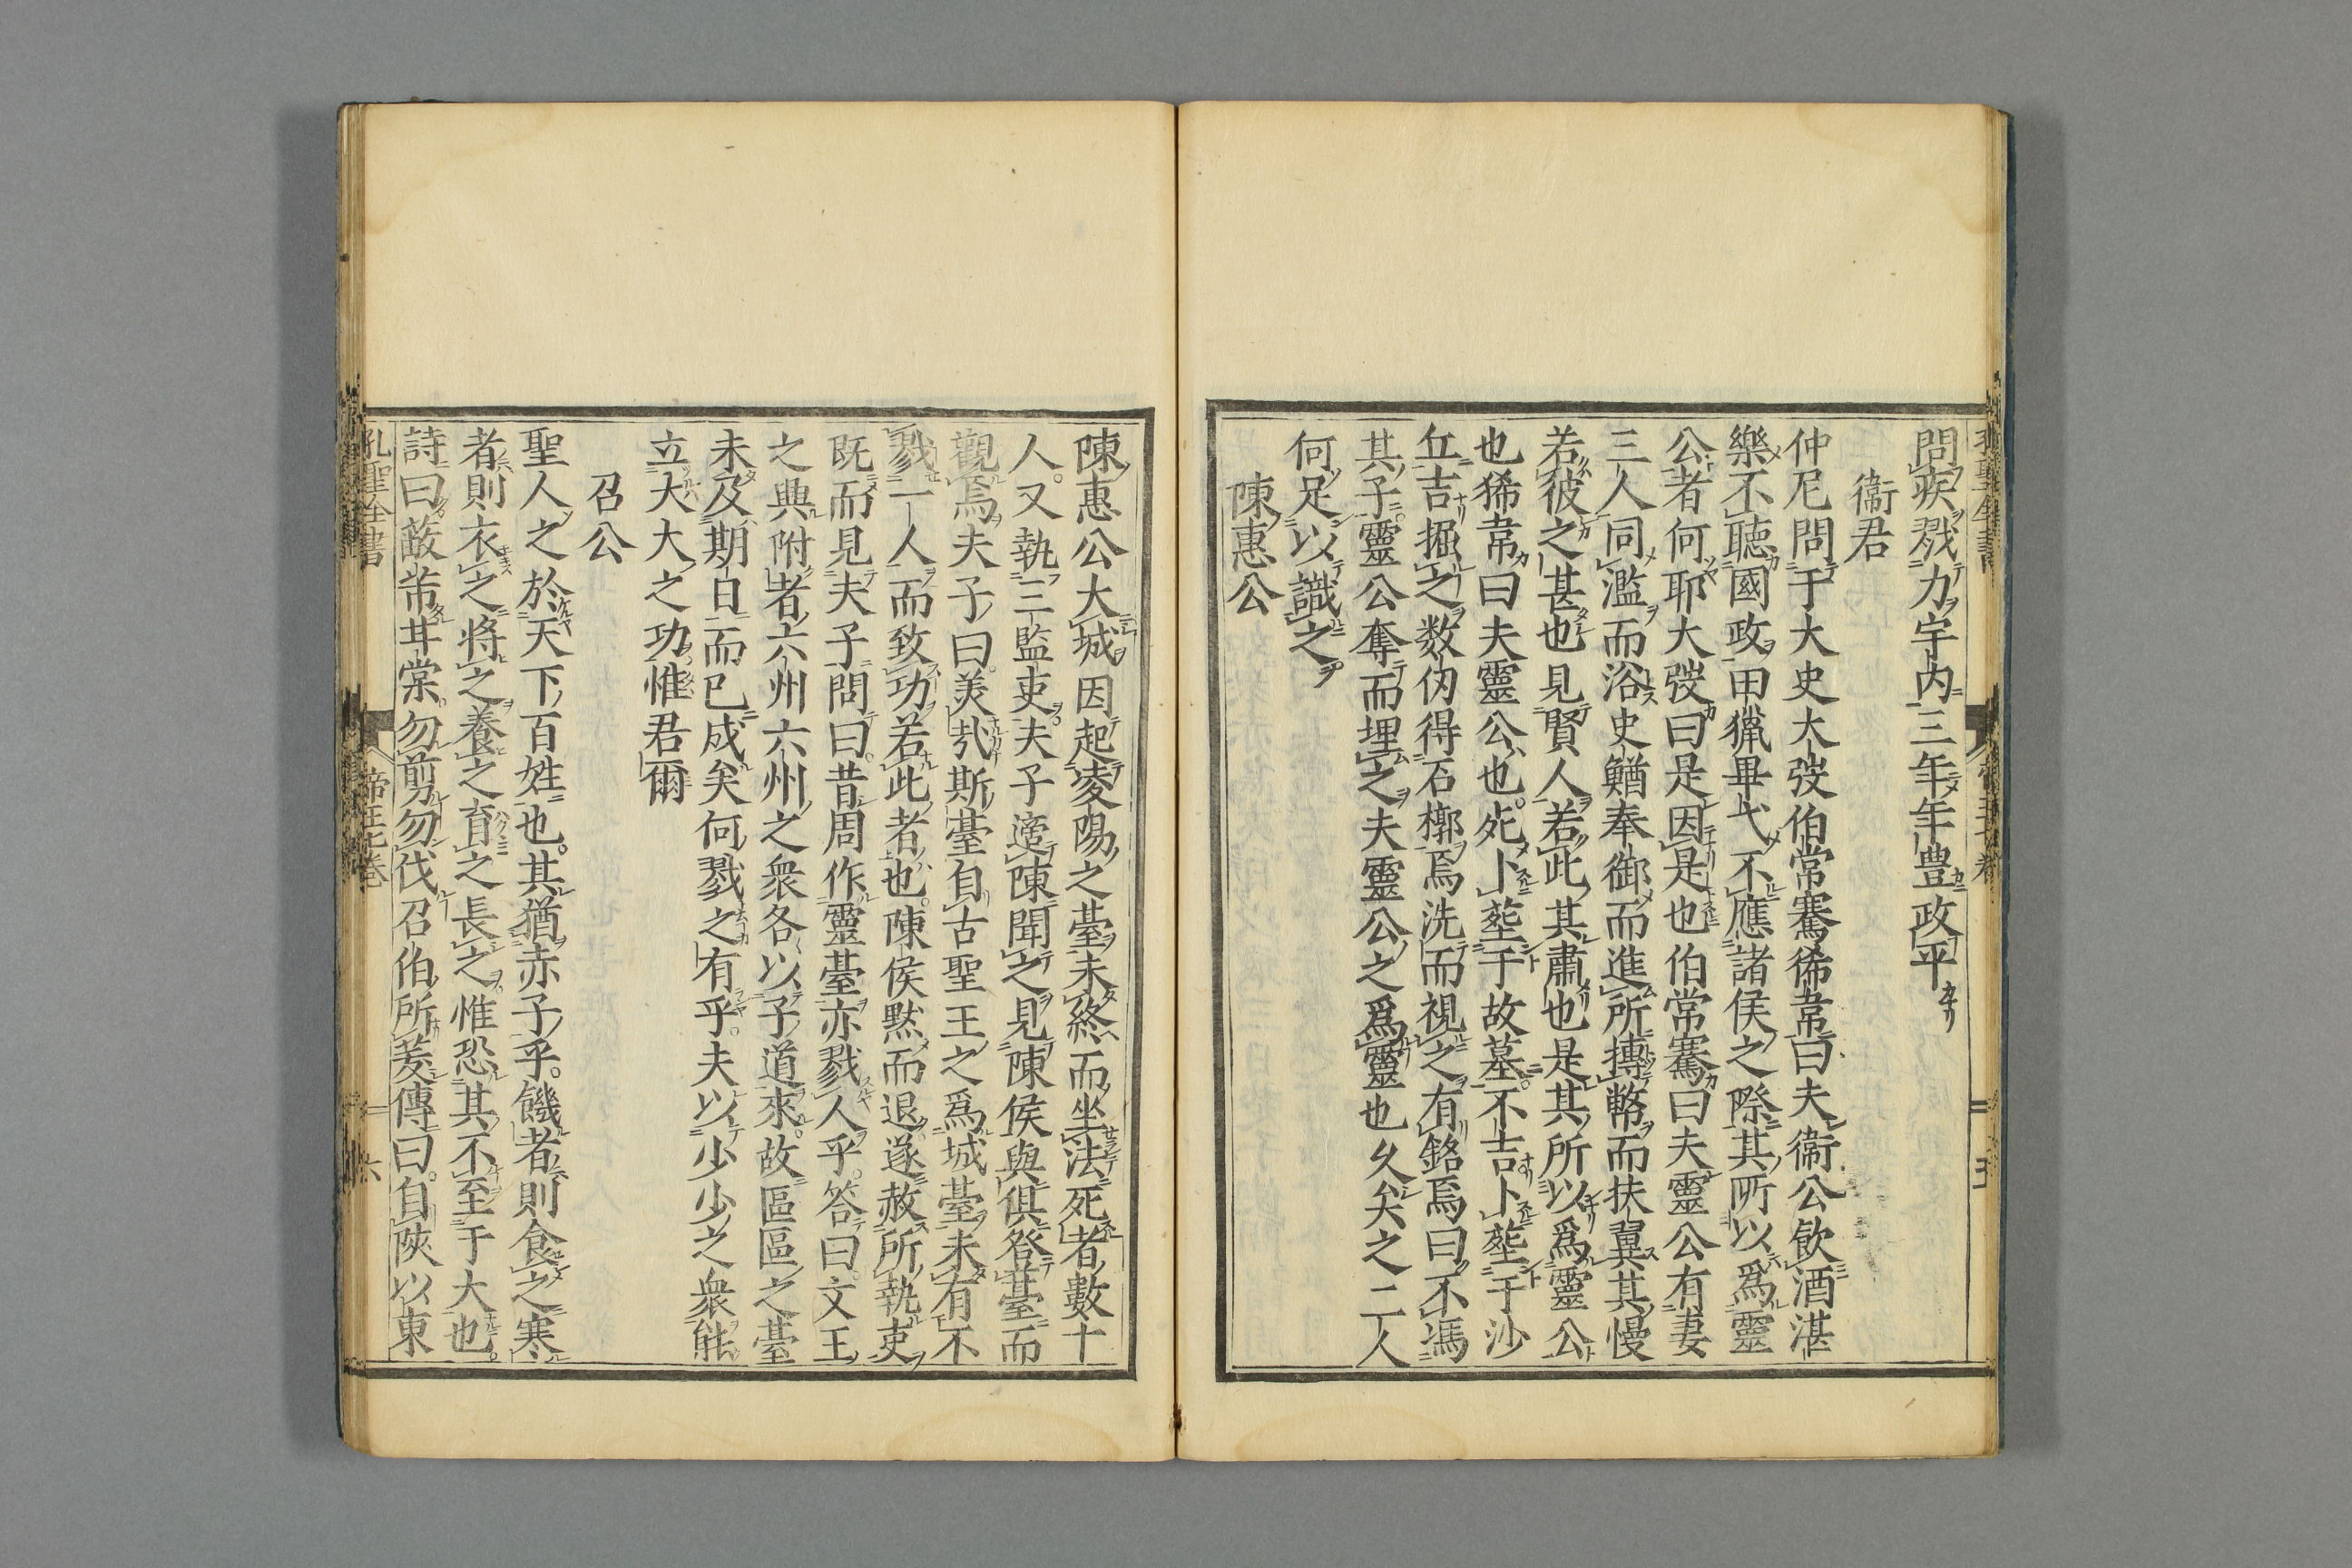 問疾戮力宇内三年年豊政平
衞君
仲尼問于大史大弢伯常騫狶韋曰夫衞公飮酒湛
樂不聽國政田獵畢弋不應諸侯之際其所以爲靈
公者何耶大弢曰是因是也伯常騫曰夫靈公有妻
三人同濫而浴史鰌奉御而進所搏幣而扶翼其慢
若彼之甚也見賢人若此其肅也是其所以爲靈公
也狶韋曰夫靈公也死卜葬于故墓不吉卜葬于沙
丘吉掘之数仞得石槨焉洗而視之有銘焉曰不馮
其子靈公奪而埋之夫靈公之爲靈也久矣之二人
何足以識之
陳惠公
陳惠公大城因起凌陽之臺未終而坐法死者數十
人又執三監吏夫子適陳聞之見陳侯與俱登臺而
觀焉夫子曰美哉斯臺自古聖王之爲城臺未有不
戮一人而致功若此者也陳侯黙而退遂赦所執吏
既而見夫子問曰昔周作靈臺亦戮人乎答曰文王
之典附者六州六州之衆各以子道來故區區之臺
未及期日而已成矣何戮之有乎夫以少少之衆能
立大大之功惟君爾
召公
聖人之於天下百姓也其猶赤子乎饑者則食之寒
者則衣之將之養之育之長之惟恐其不至于大也
詩曰蔽芾甘棠勿剪勿伐召伯所茇傳曰自陜以東
孔聖全書 帝王七巻 六